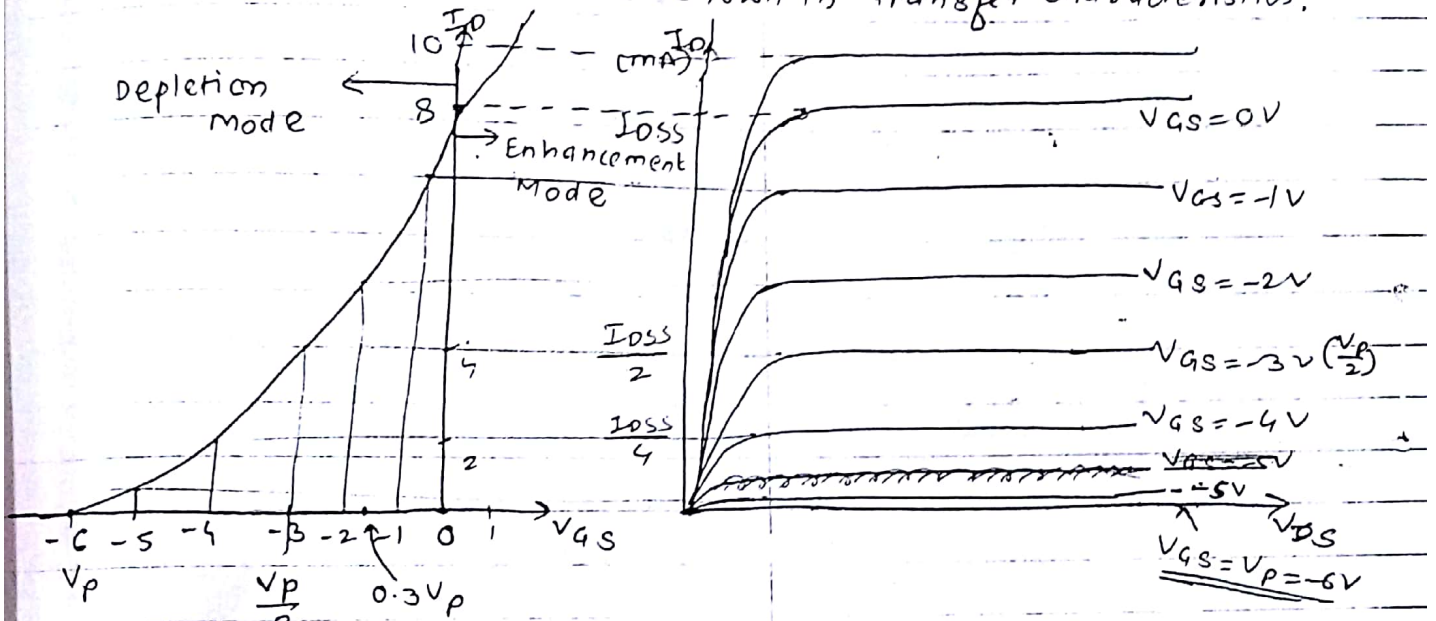 its transfer characteristics.
ID
10
ID
(mA)
Depletion
mode
8
IDSS
Enhancement
Mode
VGS = 0V
VGS = -1V
VGS = -2V
IDSS/2
4
VGS = -3V (VP/2)
IDSS/4
2
VGS = -4V
-5V
-6 -5 -4 -3 -2 -1 0 1 VGS
VDS
VP
VP/2
0.3VP
VGS = VP = -6V